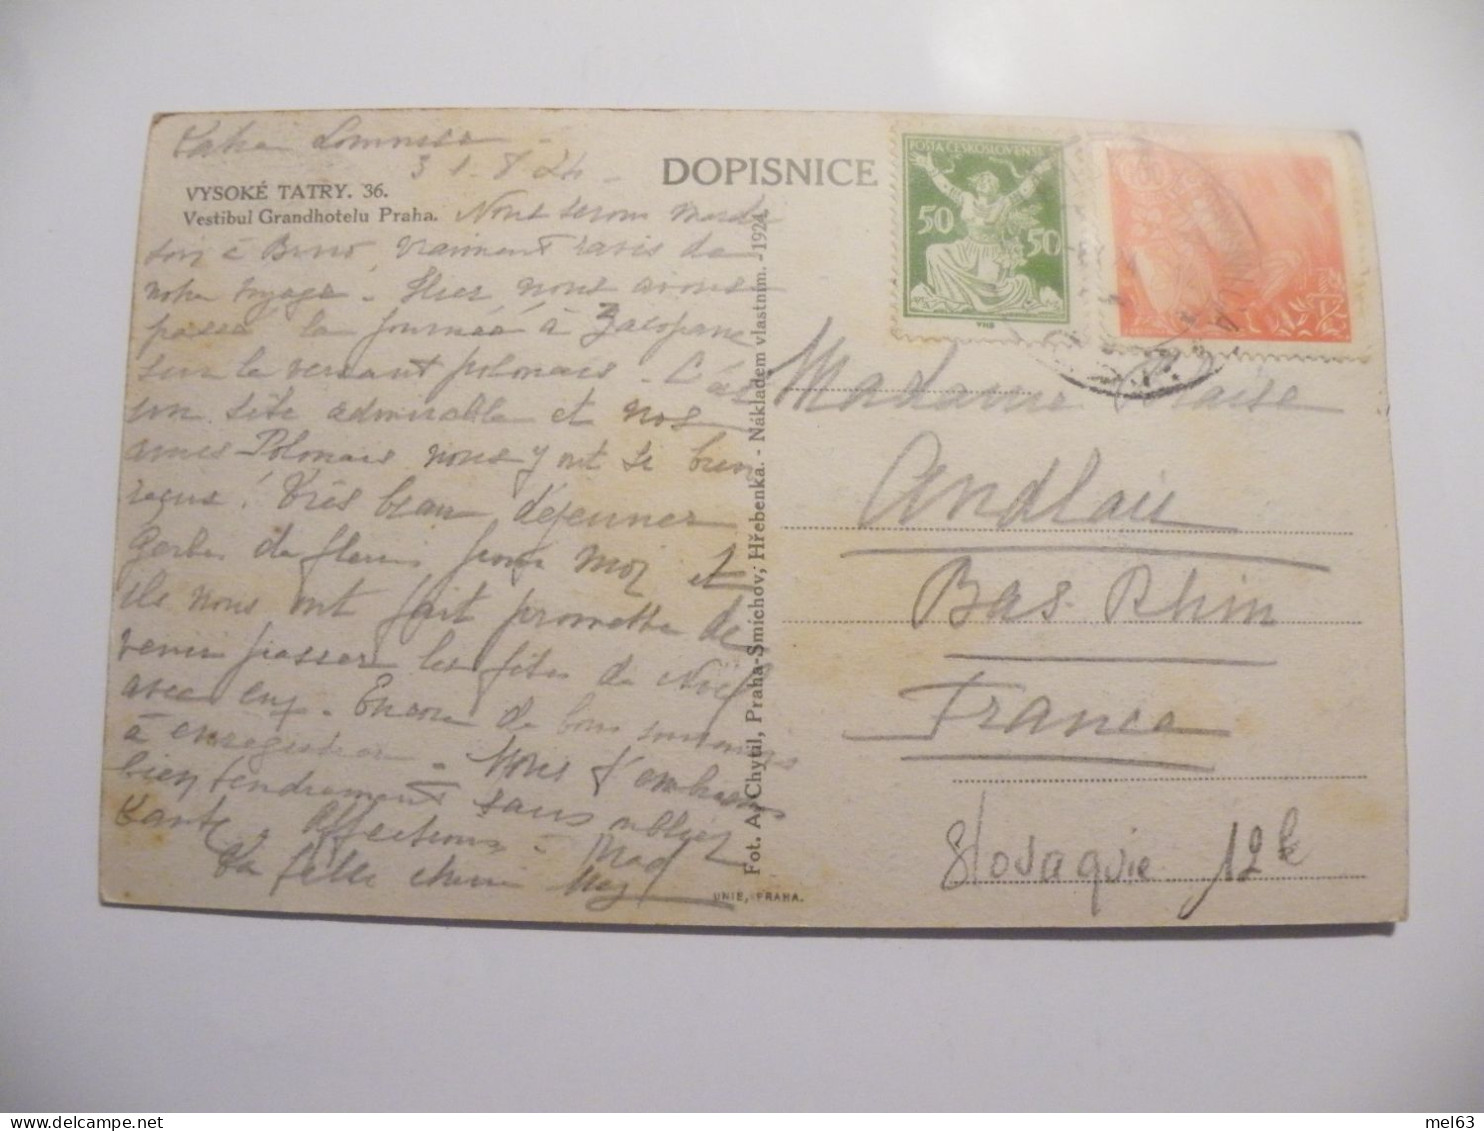 Lomnica
31.8.24
VYSOKÉ TATRY. 36.
Vestibul Grandhotelu Praha.
DOPISNICE
Nous serons mardi
soir à Brno, vraiment ravis de
notre voyage. Hier nous avons
passé la journée à Zacopane
sur le versant polonais. C'est
un site admirable et nos
amis Polonais nous y ont si bien
reçus! Très beau déjeuner
Gerbes de fleurs pour moi et
ils nous ont fait promettre de
venir passer les fêtes de Noël
avec eux. Encore de bons souvenirs
à enregistrer. Nous t'embrassons
bien tendrement sans oublier
Tante. Affections
Ta fille chérie
Fot. A. Chytil, Praha-Smíchov; Hřebenka. - Nákladem vlastním. - 1924.
UNIE, PRAHA.
POŠTA ČESKOSLOVENSKÁ
50 50
Madame Blaise
Andlau
Bas-Rhin
France
Slovaquie 12k
mel63